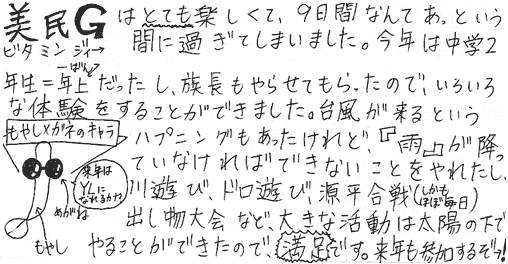 美民G はとても楽しくて、9日間なんてあっという
ビタミンジィー→ 間に過ぎてしまいました。今年は中学2
いちばん↗
年生=年上だったし、族長もやらせてもらったので、いろいろ
な体験をすることができました。台風が来るという
もやし×メガネのキャラ
ハプニングもあったけれど、『雨』が降っ
ていなければできないことをやれたし、
来年は
YLに
なれるかな?
川遊び、ドロ遊び、源平合戦(しかも
ほぼ毎日)
めがね
出し物大会など、大きな活動は太陽の下で
もやし
やることができたので、満足です。来年も参加するぞっ!